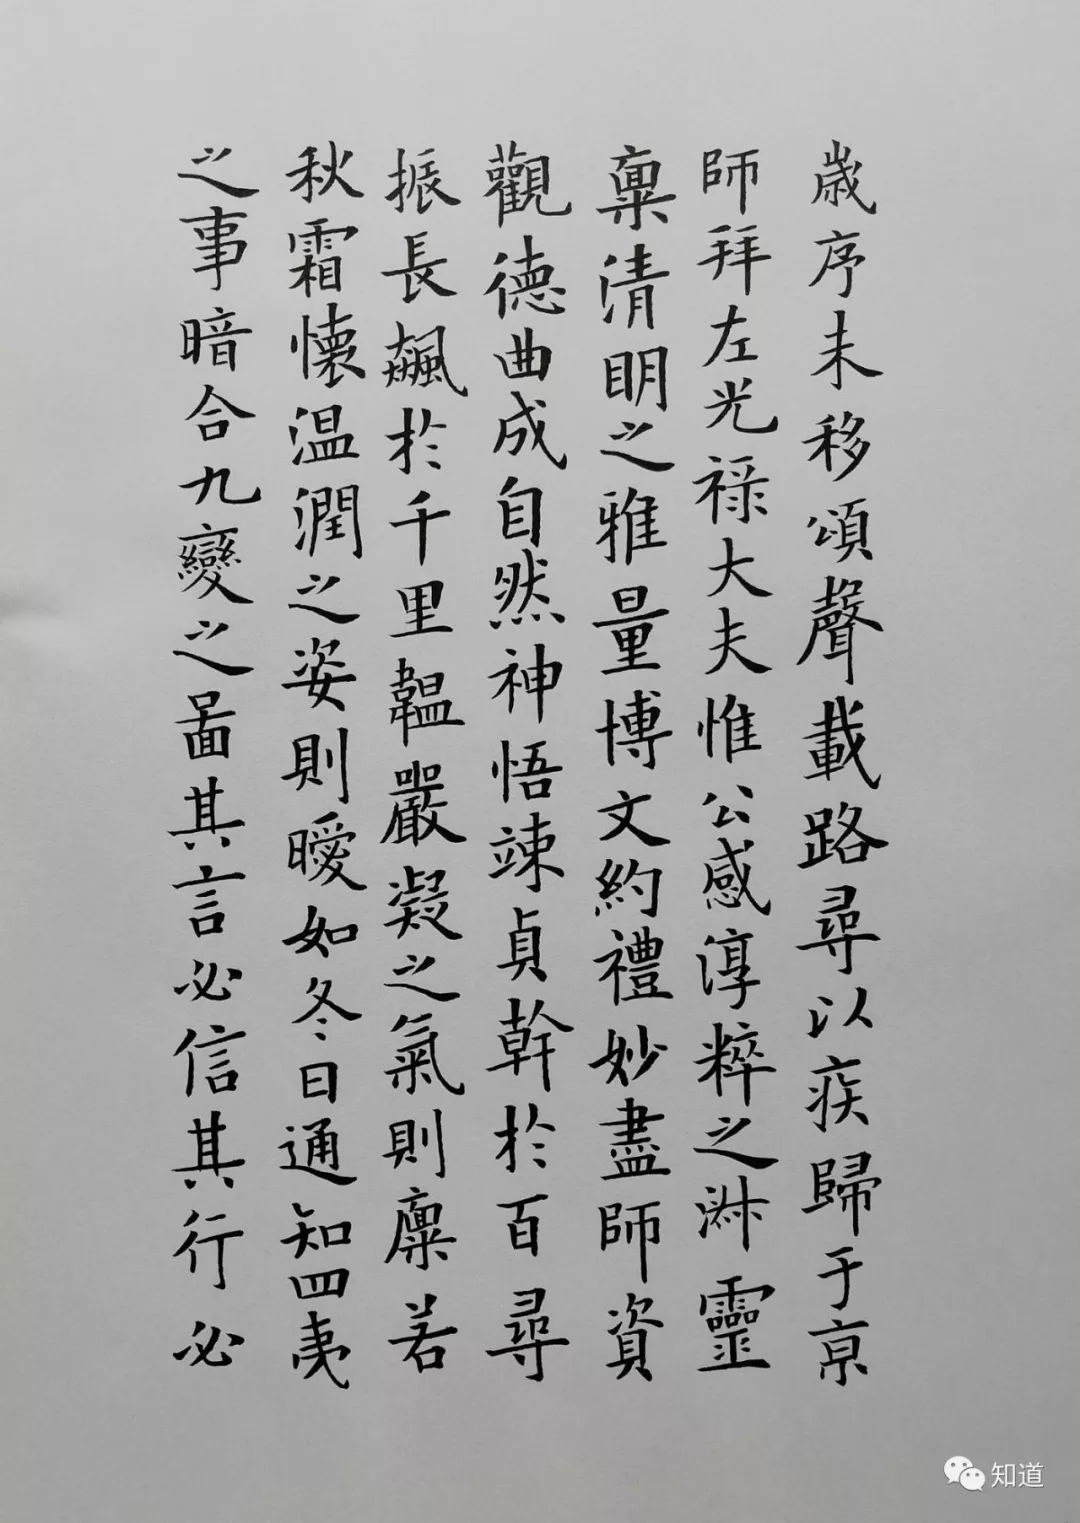 歲序未移頌聲載路尋以疾歸于京
師拜左光祿大夫惟公感淳粹之淋靈
稟清明之雅量博文約禮妙盡師資
觀德曲成自然神悟竦貞幹於百尋
振長飆於千里韞嚴凝之氣則廩若
秋霜懷温潤之姿則曖如冬日通知四夷
之事暗合九變之啚其言必信其行必
知道